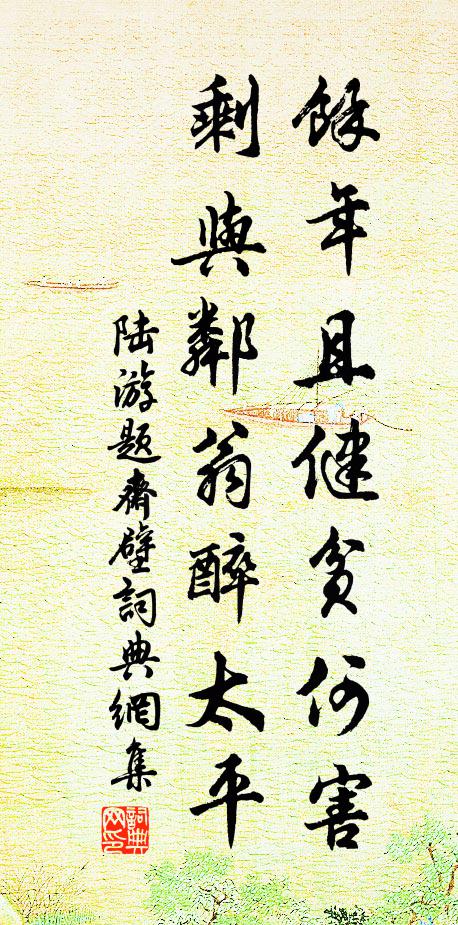 餘年且健貧何害
剩與鄰翁醉太平
陸游題齋壁詞典網集
詞典网印